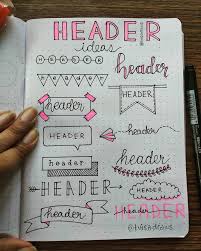 HEADER
ideas
HEADER
header
header
HEADER
header
header
HEADER
header
header
header
HEADER
HEADER
header
HEADER